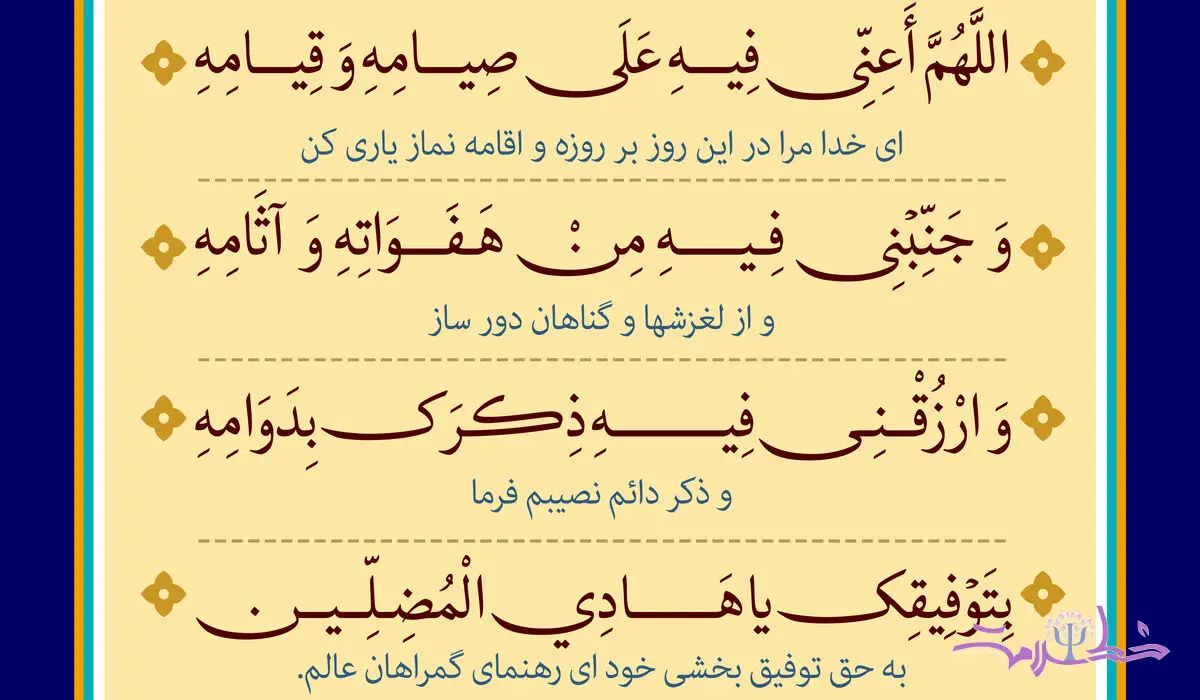 اللَّهُمَّ أَعِنِّي فِيهِ عَلَى صِيَامِهِ وَ قِيَامِهِ
ای خدا مرا در این روز بر روزه و اقامه نماز یاری کن
وَ جَنِّبْنِي فِيهِ مِنْ هَفَوَاتِهِ وَ آثَامِهِ
و از لغزشها و گناهان دور ساز
وَ ارْزُقْنِي فِيهِ ذِكْرَكَ بِدَوَامِهِ
و ذکر دائم نصیبم فرما
بِتَوْفِيقِكَ يا هَادِي الْمُضِلِّينَ
به حق توفیق بخشی خود ای رهنمای گمراهان عالم.
خط سلامت